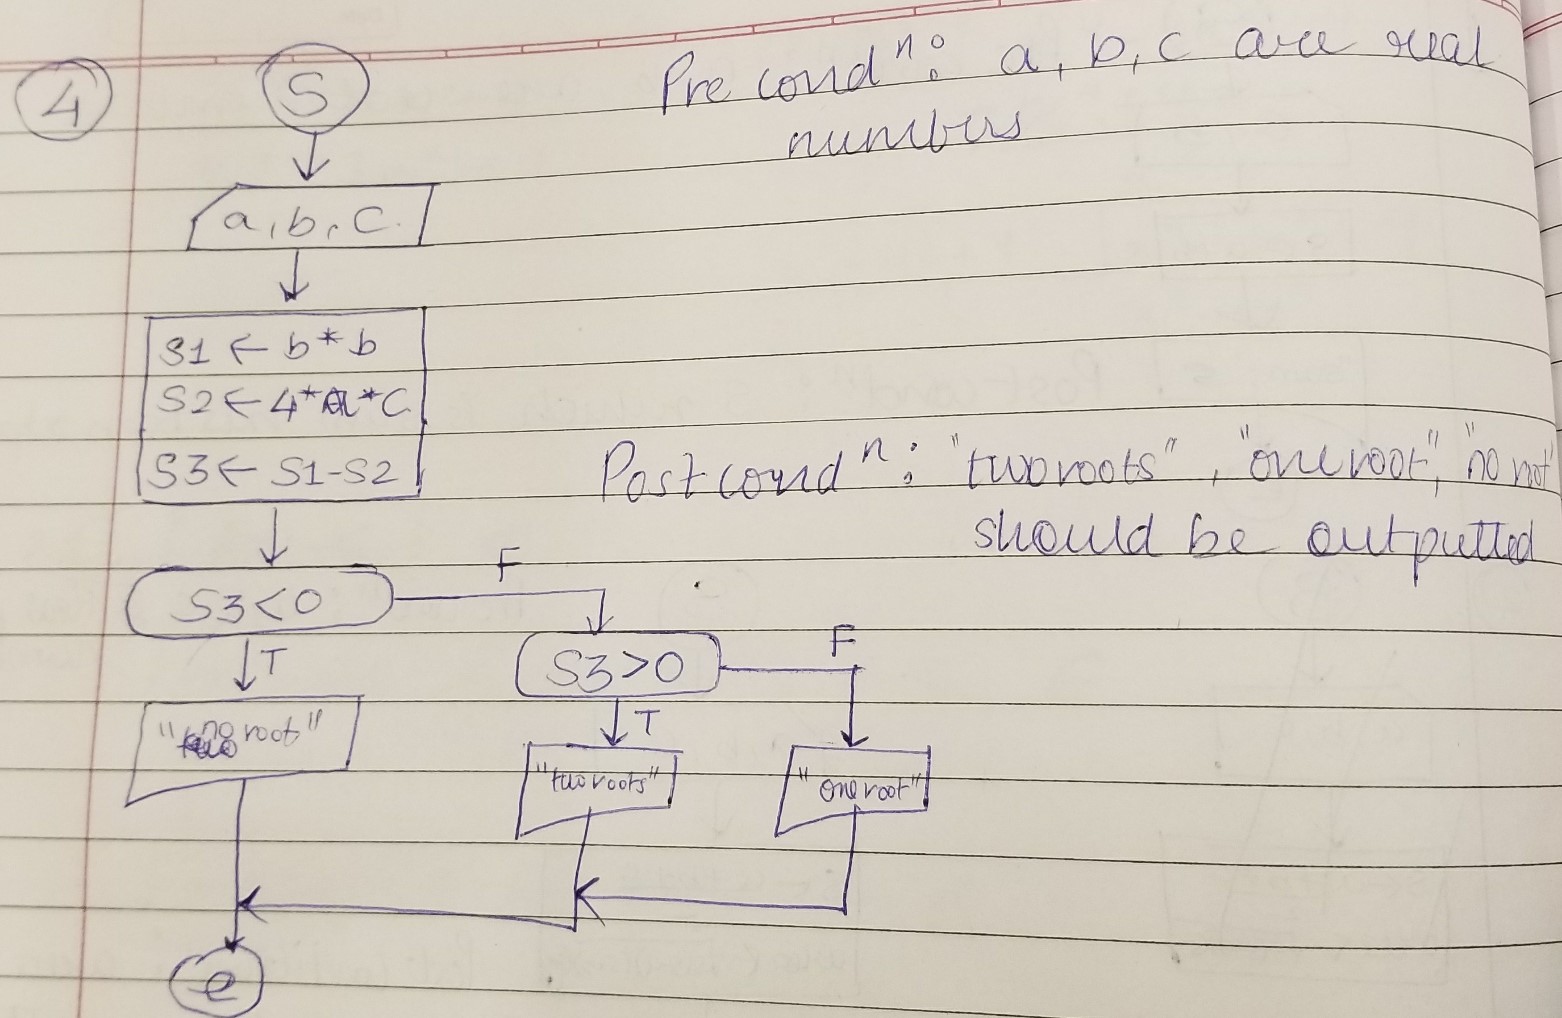 4
S
Pre condⁿ: a, b, c are real
numbers
a, b, c.
S1 ← b * b
S2 ← 4 * a * C
S3 ← S1-S2
Post condⁿ: "two roots", "one root", "no root"
should be outputted
S3<0
F
T
S3>0
F
T
"no root"
"two roots"
"one root"
e